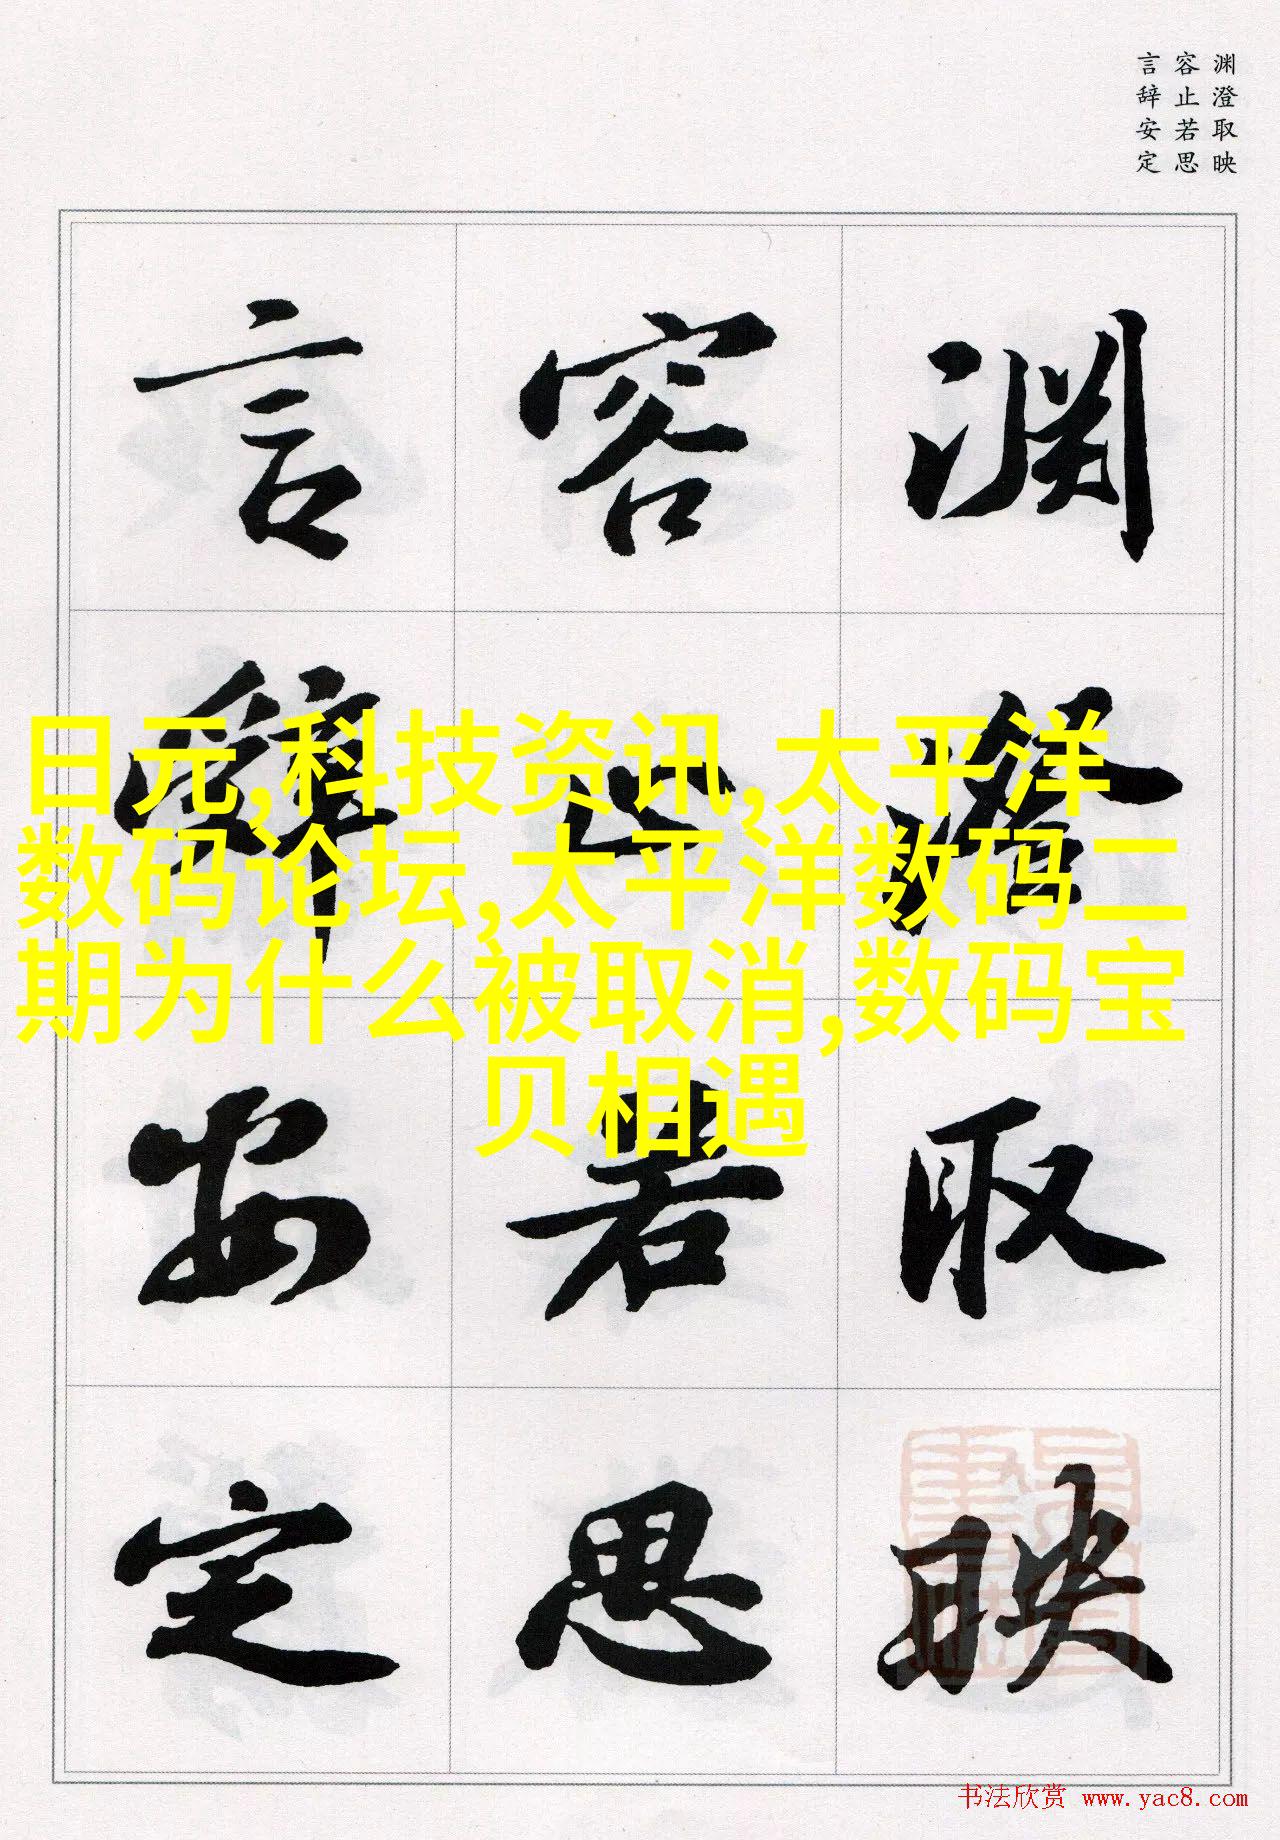 渊澄取映
容止若思
言辞安定
渊澄取映
容止若思
言辞安定
日元,科技资讯,太平洋
数码论坛,太平洋数码二
期为什么被取消,数码宝
贝相遇
书法欣赏 www.yac8.com